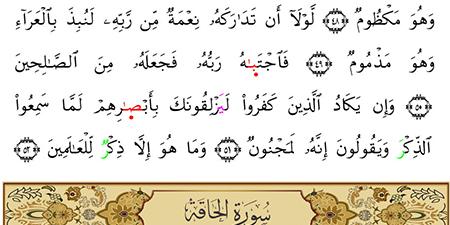 وَهُوَ مَكْظُومٌ ﴿٤٨﴾ لَّوْلَآ أَن تَدَٰرَكَهُۥ نِعْمَةٌ مِّن رَّبِّهِۦ لَنُبِذَ بِٱلْعَرَآءِ
وَهُوَ مَذْمُومٌ ﴿٤٩﴾ فَٱجْتَبَٰهُ رَبُّهُۥ فَجَعَلَهُۥ مِنَ ٱلصَّٰلِحِينَ
﴿٥٠﴾ وَإِن يَكَادُ ٱلَّذِينَ كَفَرُوا۟ لَيَزْلِقُونَكَ بِأَبْصَٰرِهِمْ لَمَّا سَمِعُوا۟
ٱلذِّكْرَ وَيَقُولُونَ إِنَّهُۥ لَمَجْنُونٌ ﴿٥١﴾ وَمَا هُوَ إِلَّا ذِكْرٌ لِّلْعَٰلَمِينَ ﴿٥٢﴾
سُورَةُ الحَاقَّةِ